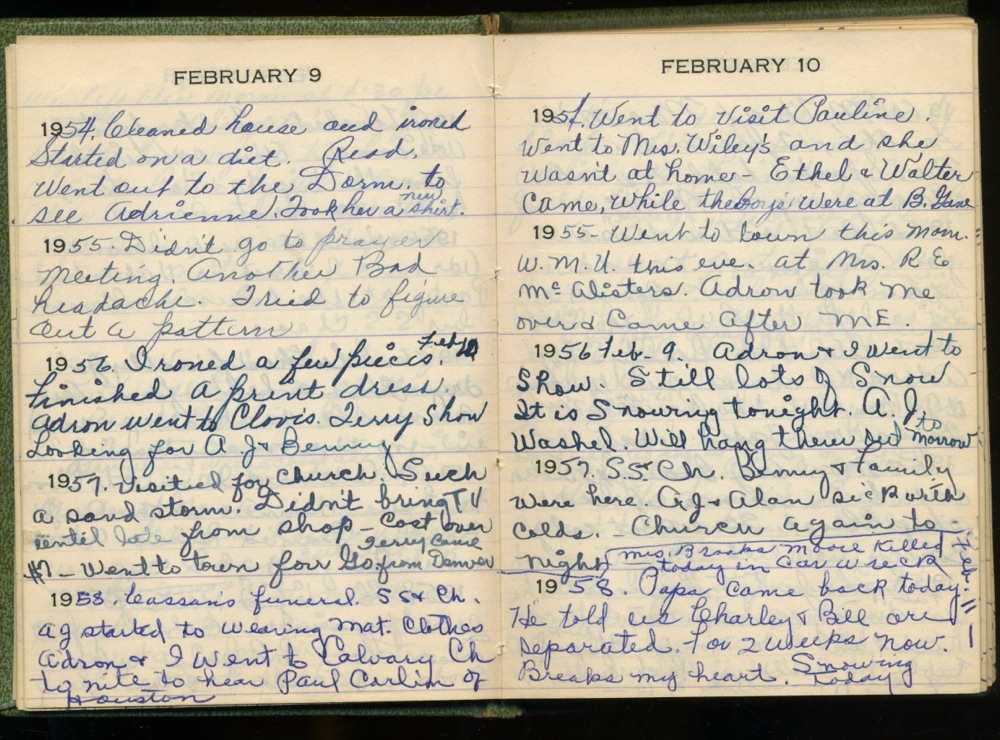 FEBRUARY 9
1954. Cleaned house and ironed
Started on a diet. Read.
Went out to the Dorm. to
see Adrienne. Took her a new shirt.
1955. Didn't go to prayer
meeting. Another Bad
headache. Tried to figure
out a pattern
1956. I roned a few pieces. Feb 10
Finished a print dress.
Adron went to Clovis. Terry Show
Looking for A.J & Benny
1957. Visited for Church. Such
a sand storm. Didn't bring TV
until late from shop - Cost over
$7 - Went to town four Go. Terry Came from Denver
1958. Cassans funeral. SS & Ch.
AJ started to wearing Mat. Clothes
Adron & I Went to Calvary Ch
to nite to hear Paul Carlin of
Houston
FEBRUARY 10
1954. Went to visit Pauline.
Went to Mrs. Wiley's and she
wasn't at home - Ethel & Walter
Came, while the Boys were at B. Game
1955 - Went to town this morn.
W.M.U. this eve. at Mrs. R E
McAlisters. Adron took me
over & Came after ME.
1956 Feb. 9. Adron & I went to
Show. Still lots of Snow
It is Snowing tonight. A. J.
Washed. Will hang them out to morrow
1957. S.S. & Ch. Benny & Family
were here. AJ & Alan sick with
colds. - Church again to -
night Mrs. Brooks Moore Killed
today in Car wreck Feb. 11
1958. Papa came back today.
He told us Charley & Bill are
separated. For 2 weeks now.
Breaks my heart. Snowing
today